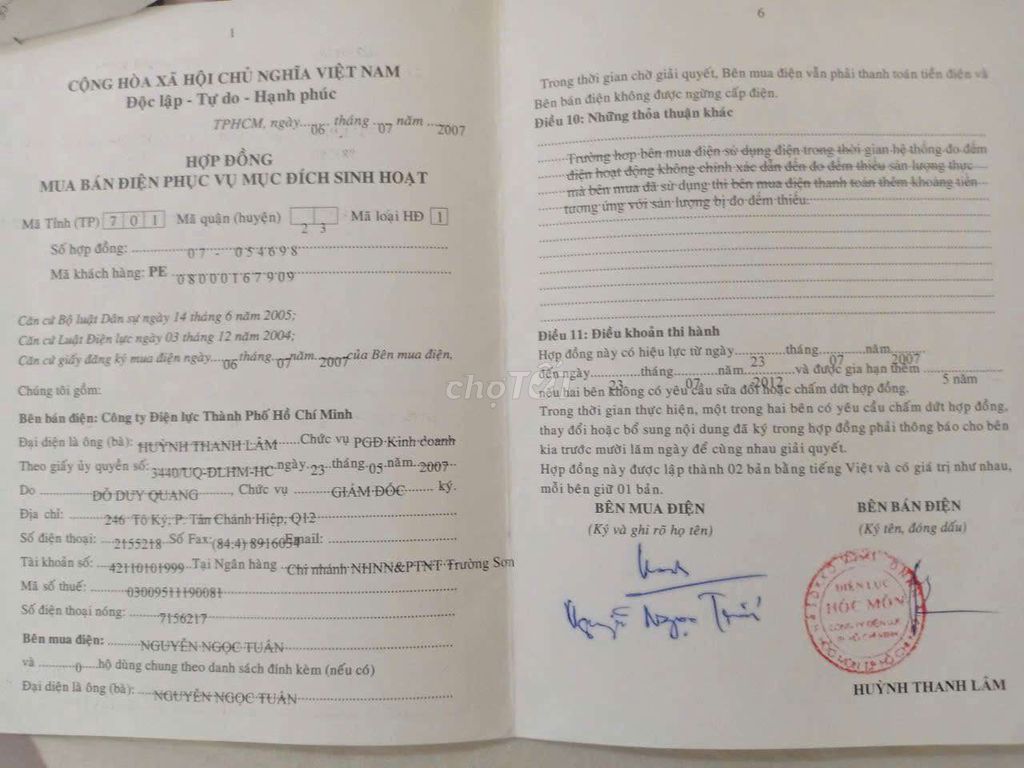 1
CỘNG HÒA XÃ HỘI CHỦ NGHĨA VIỆT NAM
Độc lập - Tự do - Hạnh phúc
TPHCM, ngày....06....tháng....07....năm....2007
HỢP ĐỒNG
MUA BÁN ĐIỆN PHỤC VỤ MỤC ĐÍCH SINH HOẠT
Mã Tỉnh (TP) 7 0 1 Mã quận (huyện) 2 3 Mã loại HĐ 1
Số hợp đồng: 07 - 054698
Mã khách hàng: PE 08000167909
Căn cứ Bộ luật Dân sự ngày 14 tháng 6 năm 2005;
Căn cứ Luật Điện lực ngày 03 tháng 12 năm 2004;
Căn cứ giấy đăng ký mua điện ngày....06tháng..07năm..2007của Bên mua điện,
Chúng tôi gồm:
Bên bán điện: Công ty Điện lực Thành Phố Hồ Chí Minh
Đại diện là ông (bà): HUỲNH THANH LÂM.....Chức vụ PGĐ Kinh doanh
Theo giấy ủy quyền số: 3440/UQ-ĐLHM-HC ngày 23 tháng 05 năm 2007
Do ĐỖ DUY QUANG, Chức vụ GIÁM ĐỐC ký.
Địa chỉ: 246 Tô Ký, P. Tân Chánh Hiệp, Q12
Số điện thoại: 2155218 Số Fax: (84.4) 8916054 Email:
Tài khoản số: 42110101999 Tại Ngân hàng Chi nhánh NHNN&PTNT Trường Sơn
Mã số thuế: 03009511190081
Số điện thoại nóng: 7156217
Bên mua điện: NGUYỄN NGỌC TUÂN
và 0 hộ dùng chung theo danh sách đính kèm (nếu có)
Đại diện là ông (bà): NGUYỄN NGỌC TUÂN
6
Trong thời gian chờ giải quyết, Bên mua điện vẫn phải thanh toán tiền điện và
Bên bán điện không được ngừng cấp điện.
Điều 10: Những thỏa thuận khác
Trường hợp bên mua điện sử dụng điện trong thời gian hệ thống đo đếm
điện hoạt động không chính xác dẫn đến đo đếm thiếu sản lượng thực
mà bên mua đã sử dụng thì bên mua điện thanh toán thêm khoảng tiền
tương ứng với sản lượng bị đo đếm thiếu.
Điều 11: Điều khoản thi hành
Hợp đồng này có hiệu lực từ ngày 23 tháng 07 năm 2007
đến ngày 23 tháng 07 năm 2012 và được gia hạn thêm 5 năm
nếu hai bên không có yêu cầu sửa đổi hoặc chấm dứt hợp đồng.
Trong thời gian thực hiện, một trong hai bên có yêu cầu chấm dứt hợp đồng,
thay đổi hoặc bổ sung nội dung đã ký trong hợp đồng phải thông báo cho bên
kia trước mười lăm ngày để cùng nhau giải quyết.
Hợp đồng này được lập thành 02 bản bằng tiếng Việt và có giá trị như nhau,
mỗi bên giữ 01 bản.
BÊN MUA ĐIỆN
(Ký và ghi rõ họ tên)
Nguyễn Ngọc
BÊN BÁN ĐIỆN
(Ký tên, đóng dấu)
ĐIỆN LỰC
HÓC MÔN
HUỲNH THANH LÂM
chợTỐT